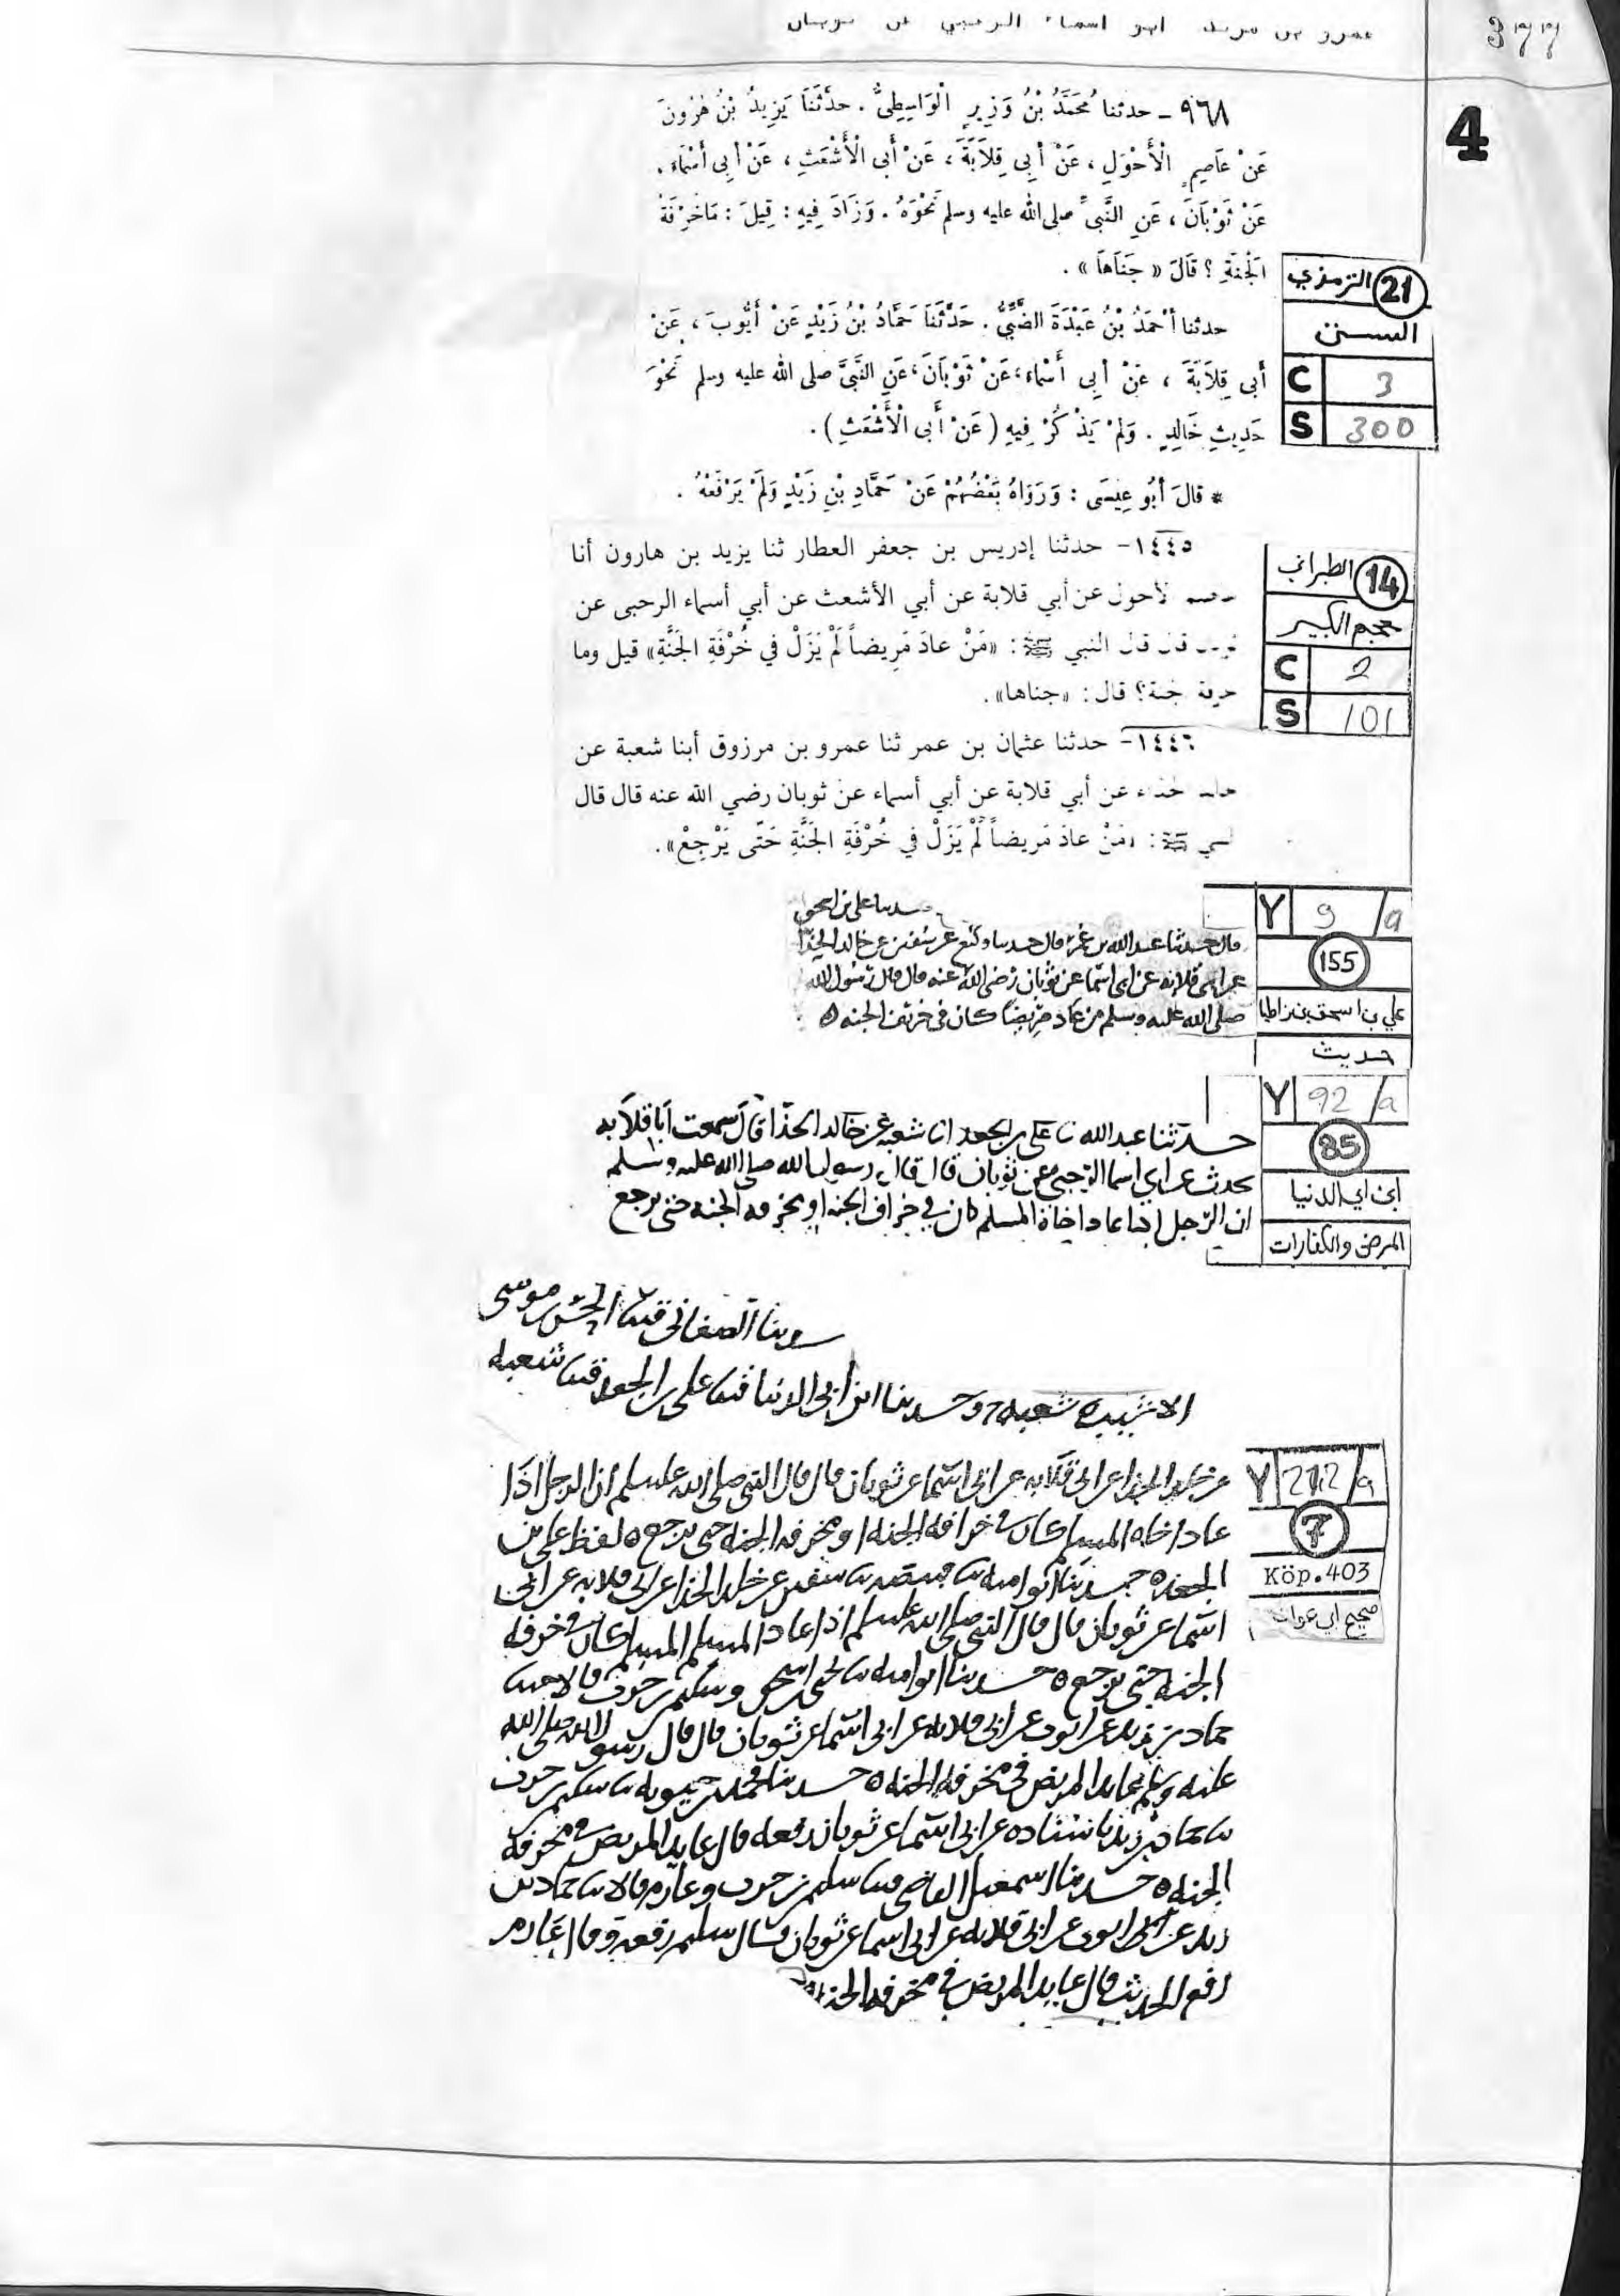 عمرو بن مريد ابو اسماء الرحبي عن ثوبان
4
٩٦٨ – حدثنا مُحَمَّدُ بْنُ وَزِيرٍ الْوَاسِطِىُّ . حدَّثَنَا يَزِيدُ بْنُ هٰرُونَ
عَنْ عَاصِمٍ الْأَحْوَلِ ، عَنْ أَبِى قِلاَبَةَ ، عَنْ أَبِى الْأَشْعَثِ ، عَنْ أَبِى أَسْمَاءَ .
عَنْ ثَوْبَانَ ، عَنِ النَّبىِّ صلى الله عليه وسلم نَحْوَهُ . وَزَادَ فِيهِ : قِيلَ : مَاخُرْفَةُ
الْجَنَّةِ ؟ قَالَ « جَنَاهَا » .
21 الترمذي
السنن
C 3
S 300
حدثنا أَحْمَدُ بْنُ عَبْدَةَ الضَّبِّىُّ . حَدَّثَنَا حَمَّادُ بْنُ زَيْدٍ عَنْ أَيُّوبَ ، عَنْ
أَبِى قِلاَبَةَ ، عَنْ أَبِى أَسْمَاءَ ، عَنْ ثَوْبَانَ ، عَنِ النَّبىِّ صلى الله عليه وسلم نَحْوَ
حَدِيثِ خَالِدٍ . وَلَمْ يَذْكُرْ فِيهِ ( عَنْ أَبِى الْأَشْعَثِ ) .
* قالَ أَبُو عِيسَى : وَرَوَاهُ بَعْضُهُمْ عَنْ حَمَّادِ بْنِ زَيْدٍ وَلَمْ يَرْفَعْهُ .
١٤٤٥- حدثنا إدريس بن جعفر العطار ثنا يزيد بن هارون أنا
لأحول عن أبي قلابة عن أبي الأشعث عن أبي أسماء الرحبى عن
قال قال النبي ﷺ : «مَنْ عادَ مَرِيضاً لَمْ يَزَلْ في خُرْفَةِ الجَنَّةِ» قيل وما
خرفة الجنة؟ قال : «جناها».
14 الطبراني
معجم الكبير
C 2
S 101
١٤٤٦- حدثنا عثمان بن عمر ثنا عمرو بن مرزوق أبنا شعبة عن
عن أبي قلابة عن أبي أسماء عن ثوبان رضي الله عنه قال قال
ﷺ : «مَنْ عادَ مَرِيضاً لَمْ يَزَلْ في خُرْفَةِ الجَنَّةِ حَتّى يَرْجِعْ».
Y 9 /a
155
علي بن اسحق بن زاطيا
حديث
حدثنا علي بن اسحق
قال حدثنا عبد الله بن قال حدثنا وكيع عن سفين عن خالد الحذا
عن ابي قلابه عن ابي اسما عن ثوبان رضي الله عنه قال قال رسول الله
صلى الله عليه وسلم من عاد مريضا كان في خرفة الجنه
Y 92 /a
85
ابن ابي الدنيا
المرض والكفارات
حدثنا عبد الله نا علي بن الجعد انا شعبه عن خالد الحذا قال سمعت ابا قلابه
يحدث عن ابي اسما الرحبي عن ثوبان قال قال رسول الله صلى الله عليه وسلم
ان الرجل اذا عاد اخاه المسلم كان في خراف الجنه او مخرفه الجنه حتى يرجع
حدثنا الصغاني قثنا الحسن بن موسى
الاشيب نا شعبه ح وحدثنا ابن ابي الدنيا قثنا علي بن الجعد قثنا شعبه
Y 212/a
7
Köp.403
صحيح ابي عوانه
عن خالد الحذا عن ابي قلابه عن ابي اسما عن ثوبان قال قال النبي صلى الله عليه وسلم ان الرجل اذا
عاد اخاه المسلم كان في خرافه الجنه او مخرفه الجنه حتى يرجع لفظ علي بن
الجعد حدثنا ابو اميه نا قبيصه نا سفين عن خالد الحذا عن ابي قلابه عن ابي
اسما عن ثوبان قال قال النبي صلى الله عليه وسلم اذا عاد المسلم المسلم كان في خرفه
الجنه حتى يرجع حدثنا ابو اميه نا يحيى بن اسحق وسليمن بن حرب قالا ثنا
حماد بن زيد عن ايوب عن ابي قلابه عن ابي اسما عن ثوبان قال قال رسول الله صلى الله
عليه وسلم عايد المريض في مخرفه الجنه حدثنا محمد بن حيويه نا سليمن بن حرب
نا حماد بن زيد باسناده عن ابي اسما عن ثوبان رفعه قال عايد المريض في مخرفه
الجنه حدثنا اسمعيل القاضي قثنا سليمن بن حرب وعارم قالا نا حماد بن
زيد عن ايوب عن ابي قلابه عن ابي اسما عن ثوبان قال سليمن رفعه وقال عارم
رفع الحديث قال عايد المريض في مخرفه الجنه